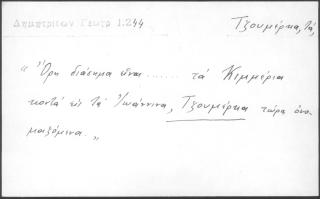 Δημητρίων Γεωγρ 1.244
Τζουμέρκα, τά,
" Ὄρη διάσημα εἶναι ....... τά Κιμμέρια
κοντά εἰς τά Ἰωάννινα, Τζουμέρκα τώρα ὀνο-
μαζόμενα. "